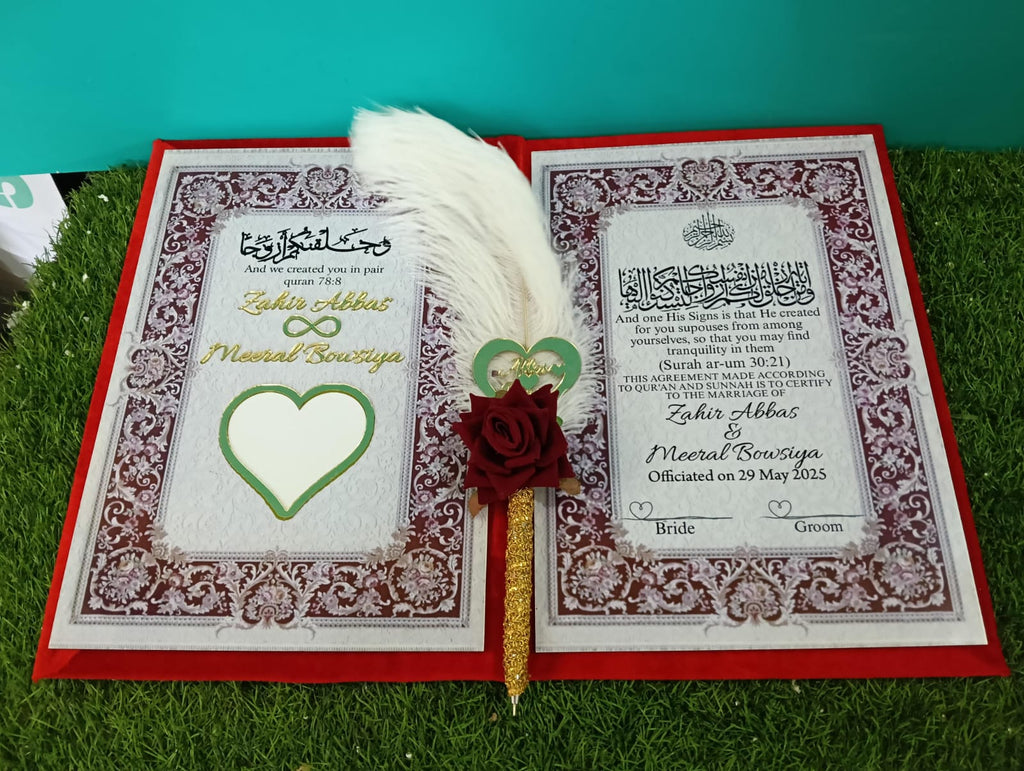 وَخَلَقْنَاكُمْ أَزْوَاجًا
And we created you in pair
quran 78:8
Zahir Abbas
Meeral Bowsiya
بسم الله الرحمن الرحيم
And one His Signs is that He created
for you supouses from among
yourselves, so that you may find
tranquility in them
(Surah ar-um 30:21)
THIS AGREEMENT MADE ACCORDING
TO QUR'AN AND SUNNAH IS TO CERTIFY
TO THE MARRIAGE OF
Zahir Abbas
&
Meeral Bowsiya
Officiated on 29 May 2025
Bride Groom